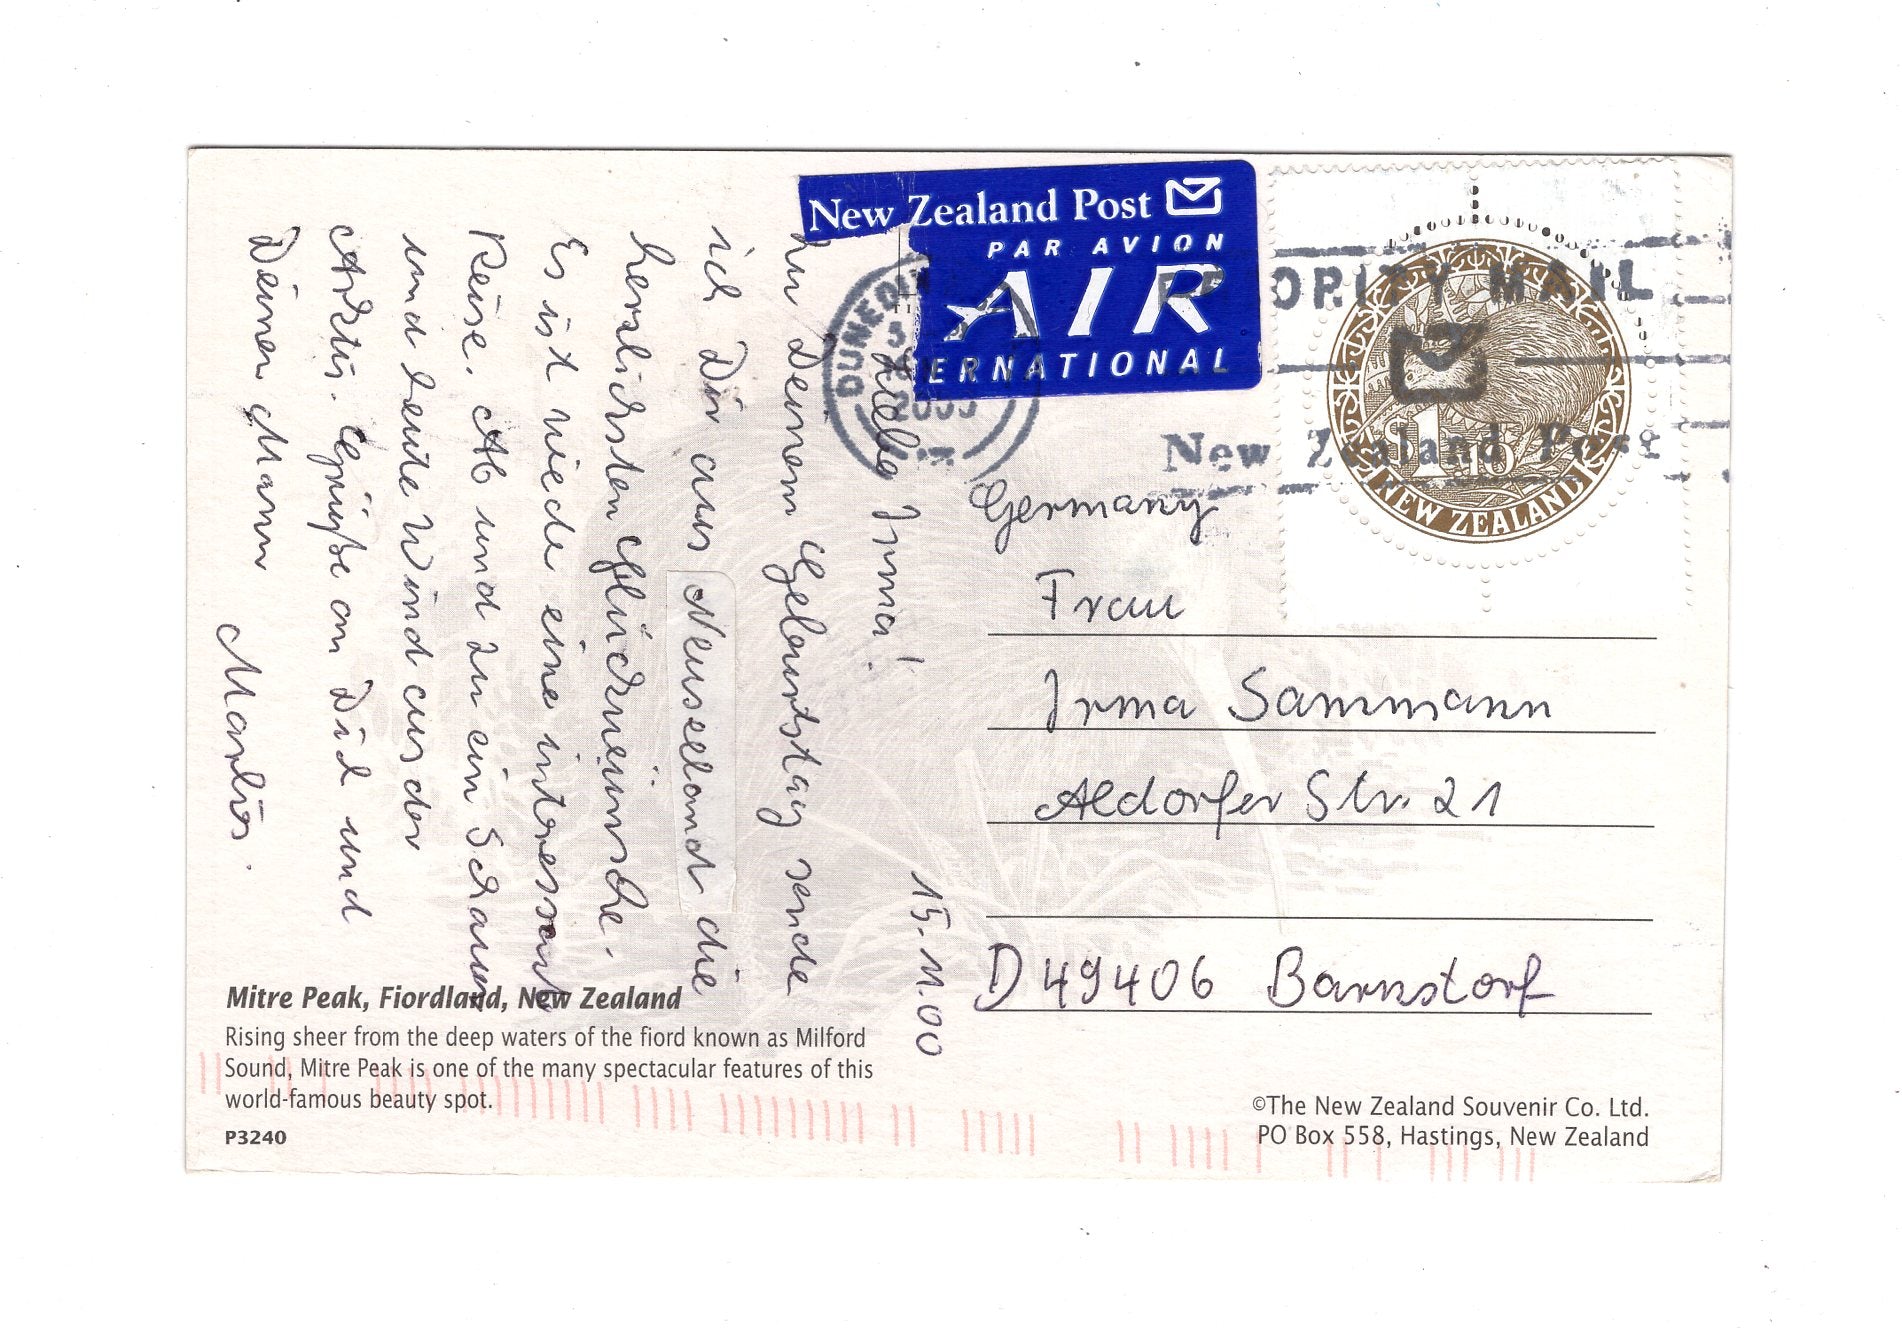 New Zealand Post
PAR AVION
AIR
ERNATIONAL
DUNEDIN
ORITY MAIL
New Zealand Post
$1.10
NEW ZEALAND
15.11.00
Liebe Irma!
Zu Deinem Geburtstag sende
ich Dir aus Neuseeland die
herzlichsten Glückwünsche.
Es ist wieder eine interessant
Reise. Ab und zu ein Schauer
und heute Wind aus der
Arktis. Grüße an Dich und
Deinen Mann
Marlies.
Germany
Frau
Irma Sammann
Aldorfer Str. 21
D 49406 Barnstorf
Mitre Peak, Fiordland, New Zealand
Rising sheer from the deep waters of the fiord known as Milford
Sound, Mitre Peak is one of the many spectacular features of this
world-famous beauty spot.
P3240
©The New Zealand Souvenir Co. Ltd.
PO Box 558, Hastings, New Zealand